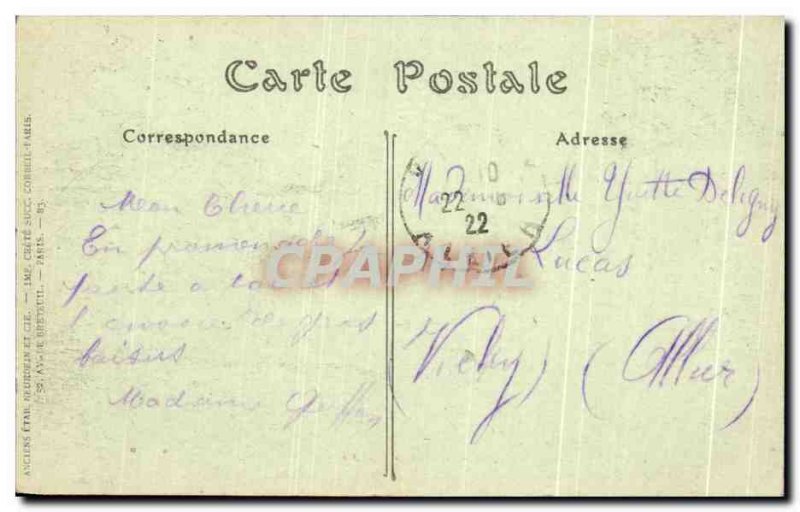 Carte Postale
Correspondance
Adresse
Mon Chérie
En promenade je
pense a toi et
t'envoie de gros
baisers
Madame
Mademoiselle Yvette Deligny
Lucas
Vichy (Allier)
10
22
22
CPAPHIL
ANCIENS ÉTAB. NEURDEIN ET CIE. — IMP. CRÉTÉ SUCC. CORBEIL-PARIS.
52, AV. DE BRETEUIL. — PARIS. — 83.